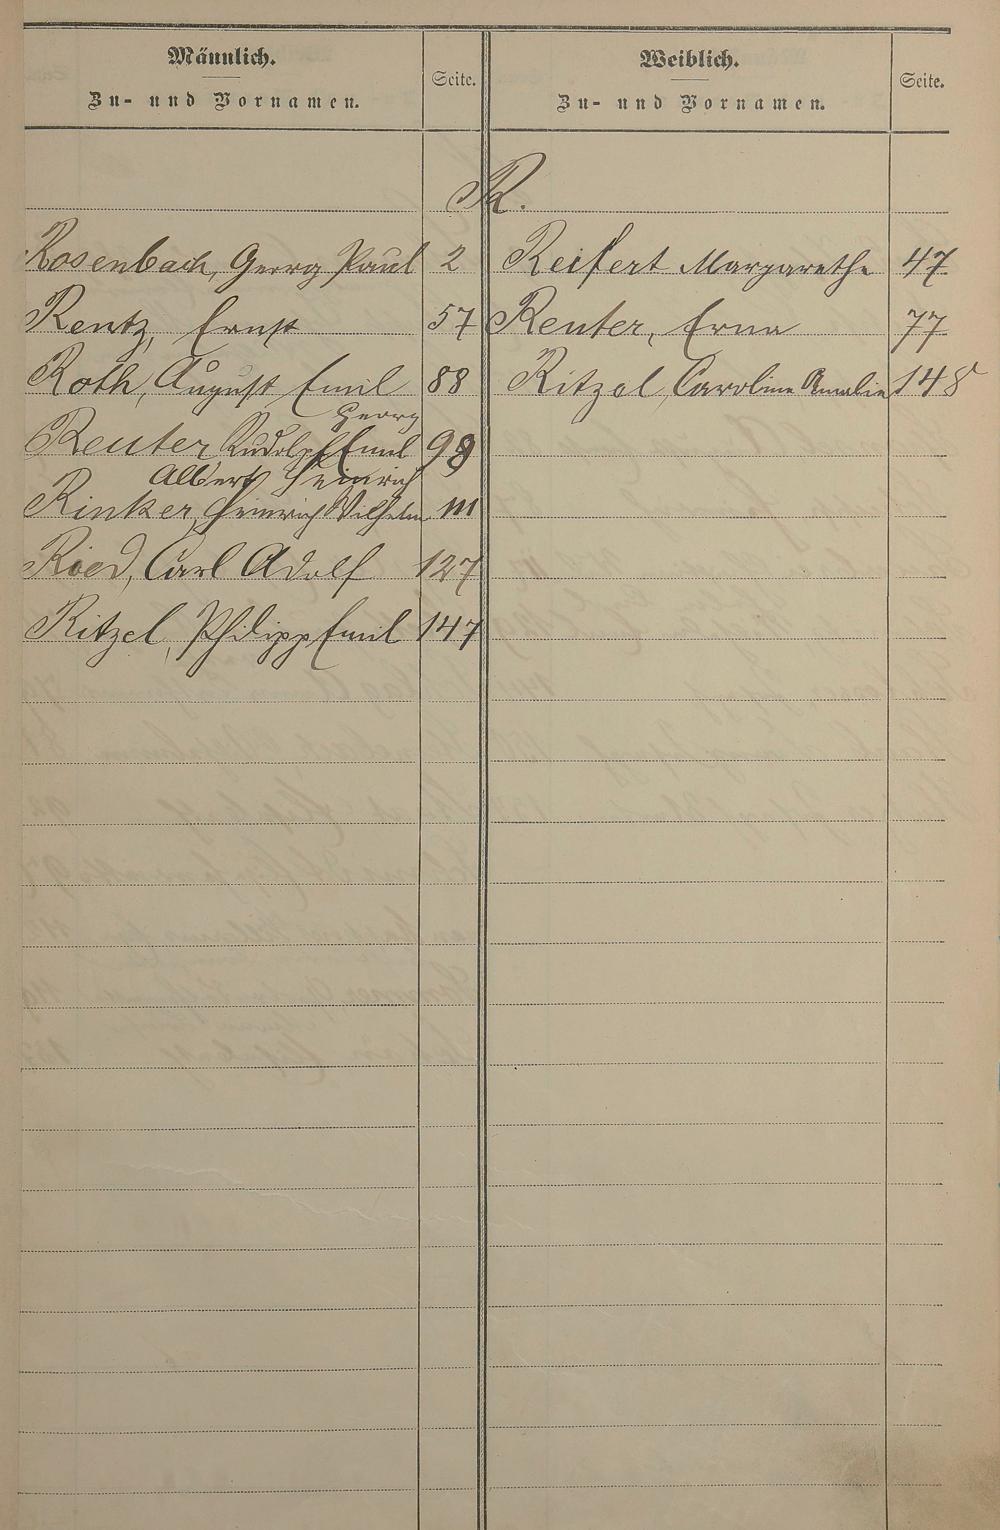 Männlich.
Zu- und Vornamen.
Seite.
Weiblich.
Zu- und Vornamen.
Seite.
R.
Rosenbach, Georg Paul 2
Rentz, Ernst 57
Roth, August Emil 88
Georg
Reuter Rudolph Emil 98
Albert Heinrich
Rinker, Heinrich Wilhelm 111
Ried, Carl Adolf 127
Ritzel, Philipp Emil 147
Reifert Margarethe 47
Reuter, Erna 77
Ritzel, Caroline Amalie 148